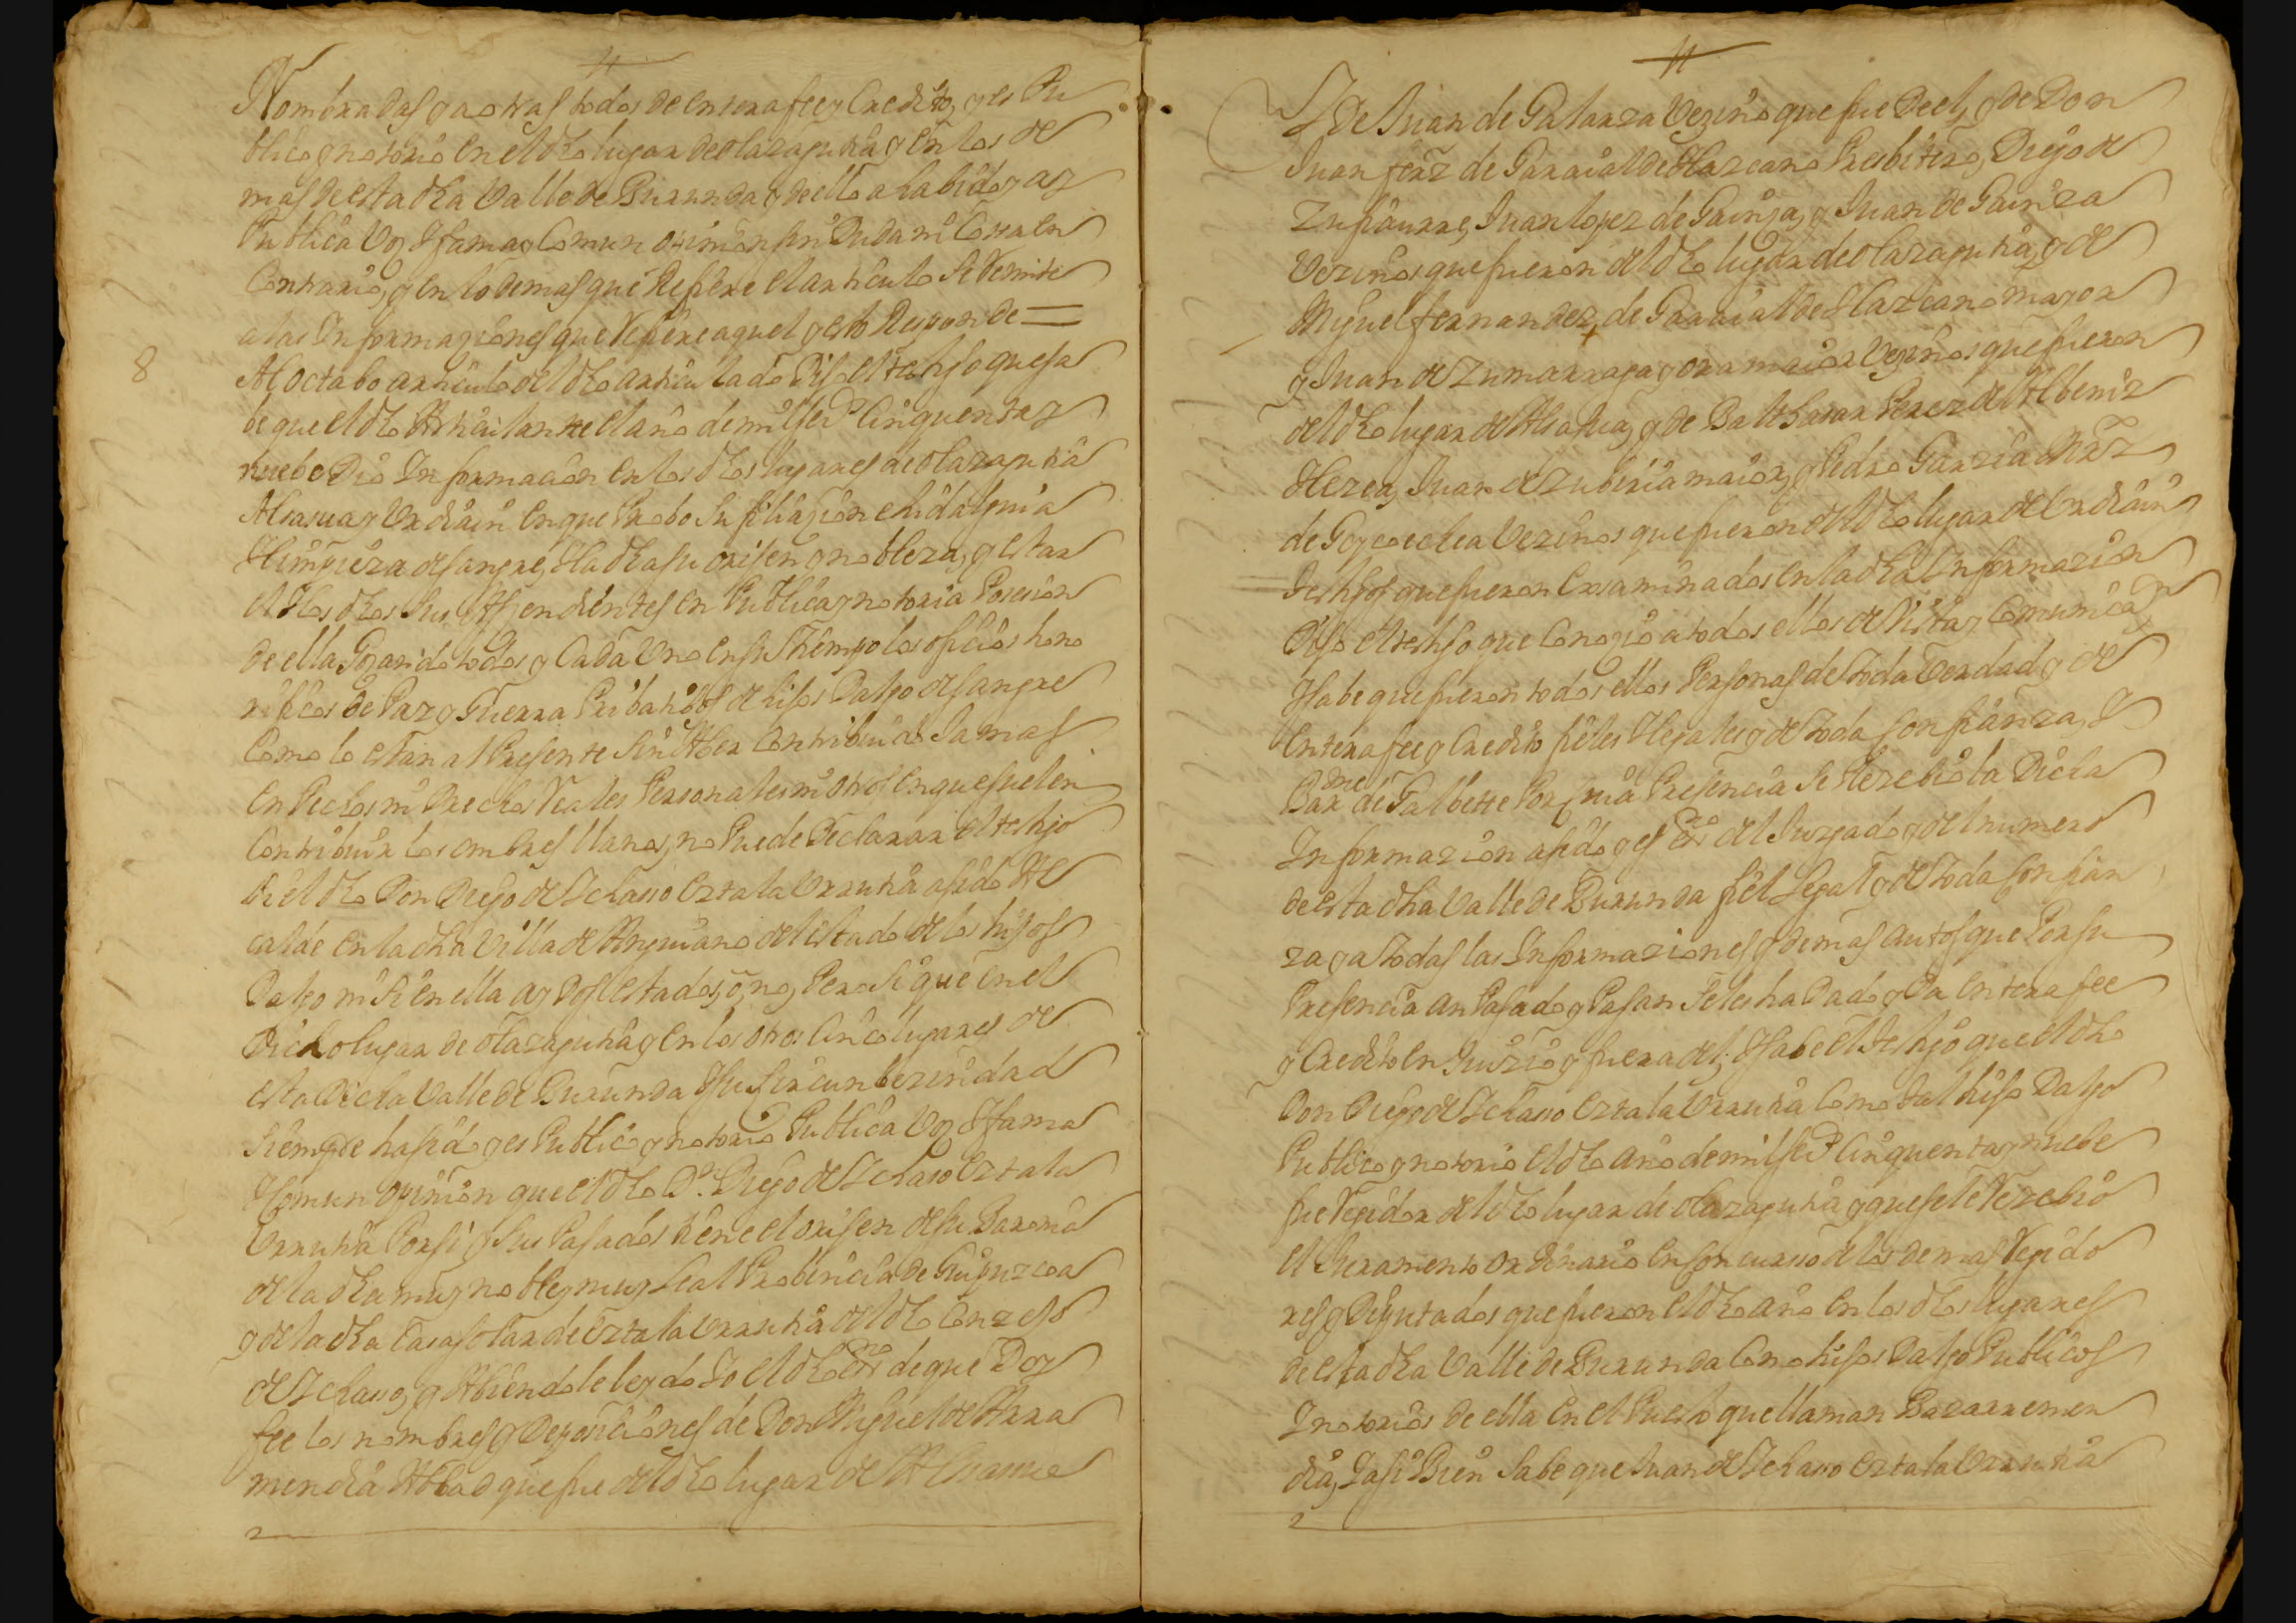 Nombradas y a otras todos de entera fee y Credito, y es Pu
blico y notorio en el dho lugar de olazagutia y en los de
mas de esta dha Valle de Burunda y de ello a habido y ay
Publica Voz Y fama y Comun opinion sin Duda ni Cosa en
Contrario, y en lo demas que Refiere el articulo se Remite
a las Informaziones que Refiere aquel y esto Responde =
8
Al octabo articulo del dho articulado Dijo el testigo que sa
be que el dho Articulante el año de mill seisᵒˢ Cinquenta y
nuebe Dio Informacion en los dhos lugares de olazagutia
Alsasua y Urdiain en que Probo su filiazion e hidalguia
Y limpieza de sangre, Y la dha su orijen y nobleza, y estar
el Y los dhos sus Aszendientes en Publica y notoria Posesion
de ella Gozando todos y Cada Uno en su Tiempo los oficios hono
rificos de Paz y Guerra Pribatibos de hijos Dalgo de sangre
Como lo estan al Presente sin Aber Contribuido Jamas
en Pechos ni Drechos Reales Personales ni otros en que suelen
Contribuir los ombres llanos, no Puede Declarar el testigo
si el dho Don Diego de Ychaso Oztala Urrutia a sido Al
calde en la dha Villa de Anguiano del estado de los hijos
Dalgo ni si en ella ay Dos estados, o, no, Pero si que en el
Dicho lugar de olazagutia y en los otros Cinco lugares de
esta Dicha Valle de Burunda Y su Circunbezindad
siempre ha sido y es Publico y notorio Publica Voz Y fama
Y Comun opinion que el dho Dⁿ. Diego de Ychaso Oztala
Urrutia Por si y sus Pasados tiene el orijen de su Baronia
de la dha muy noble y muy Leal Probincia de Guipuzcoa
y de la dha Casa solar de Oztala Urrutia del dho Conzejo
de Ychaso, y Abiendole leydo Yo el dho Essⁿᵒ de que Doy
fee los nombres y Deposiciones de Don Miguel de Arra
mendia Abbad que fue del dho lugar de Alsasua
Y de Juan de Galarza Vezino que fue de el, y de Don
Juan ferrz de Garaialde Y lazcano Presbitero, Diego de
Zufiaurre, Juan lopez de Gainza, y Juan de Gainza
Vezinos que fueron del dho lugar de olazagutia, y de
Miguel fernandez de Garaialde Y lazcano mayor
y Juan de Zumarraga y ora maior Vezinos que fueron
del dho lugar de Alsasua, y de Balthasar Perez de Albeniz
Y Lezea, Juan de Zubiria maior, y Pedro Garzia Mrz
de Goycoechea Vezinos que fueron del dho lugar de Urdiain
Testigos que fueron exsaminados en la dha Informazion
Dijo el testigo que Conozio a todos ellos de Vista y Comunicaᵒⁿ
Y sabe que fueron todos ellos Personas de toda Verdad y de
entera fee y Credito fieles Y legales y de toda Confianza, Y
Barᵐᵉ de Galbete Por Cuia Presencia se Rezebio la Dicha
Informazion a sido y es Essⁿᵒ del Juzgado y del numero
de esta dha Valle de Burunda fiel Legal y de toda Confian
za y a todas las Informaziones y demas autos que Por su
Presencia an Pasado y Pasan se les ha Dado y Da entera fee
y Credito en Juizio y fuera de el, Y sabe el testigo que el dho
Don Diego de Ychaso Oztala Urrutia Como tal hijo Dalgo
Publico y notorio el dho año de mil seisᵒˢ Cinquenta y nuebe
fue Regidor del dho lugar de olazagutia y que se le Rezebio
el Juramento ordinario en Concurso de los demas Regido
res y Diputados que fueron el dho año en los dhos lugares
de esta dha Valle de Burunda Como hijos Dalgo Publicos
Y notorios de ella en el Puesto que llaman Bazarremen
dia, Y asi Bien sabe que Juan de Ychaso Oztala Urrutia